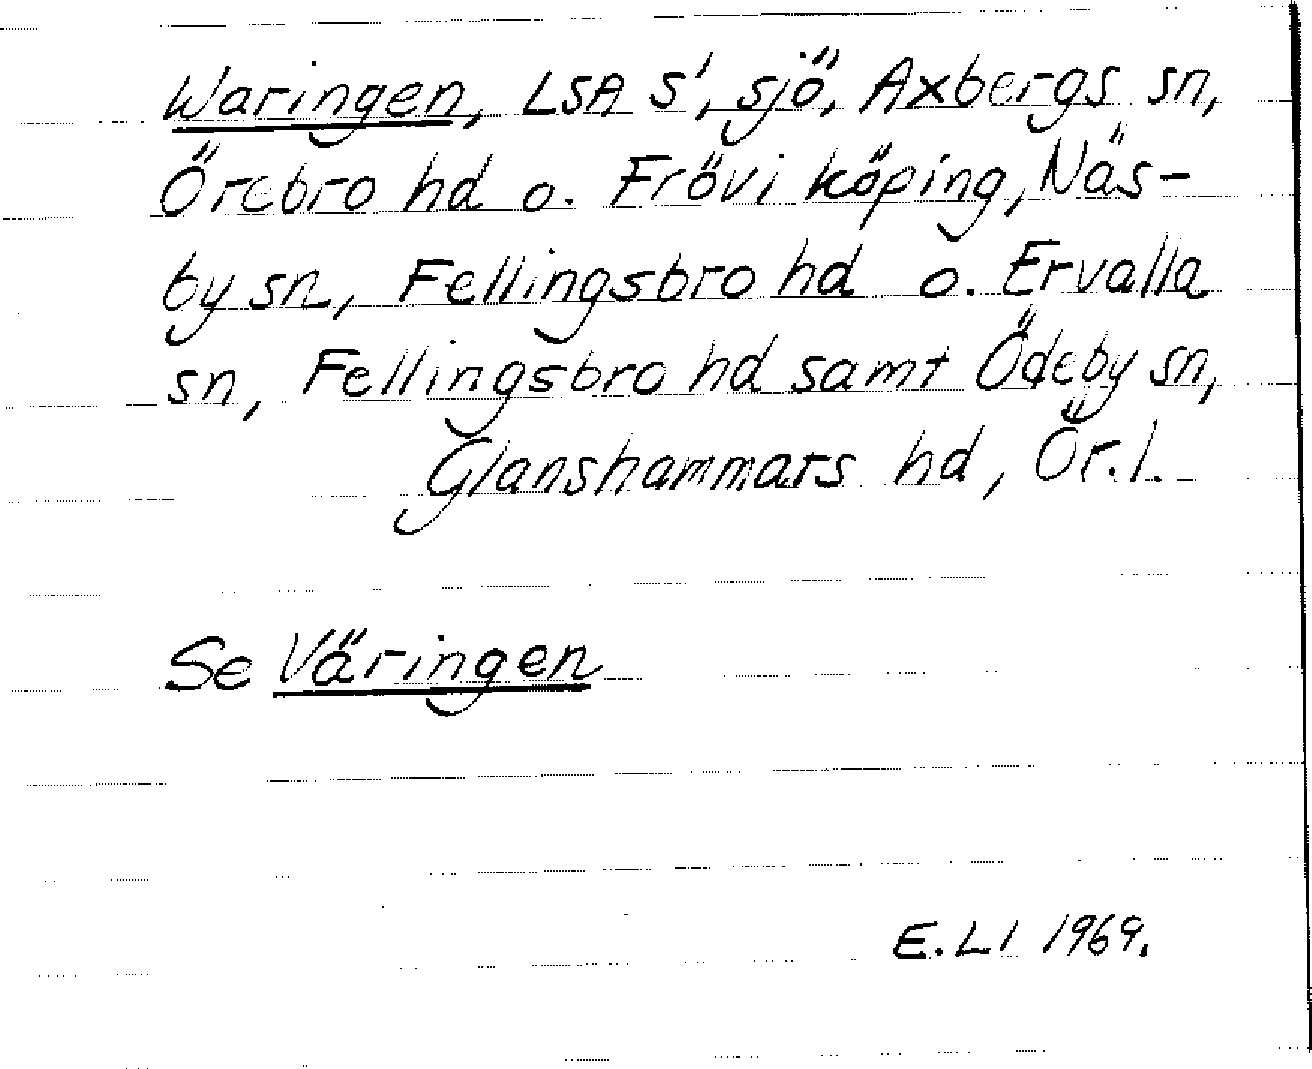 Waringen, LSA S¹, sjö, Axbergs sn,
Örebro hd o. Frövi köping, Näs-
by sn, Fellingsbro hd o. Ervalla
sn, Fellingsbro hd samt Ödeby sn,
Glanshammars hd, Ör. l.
Se Väringen
E. LI 1969.